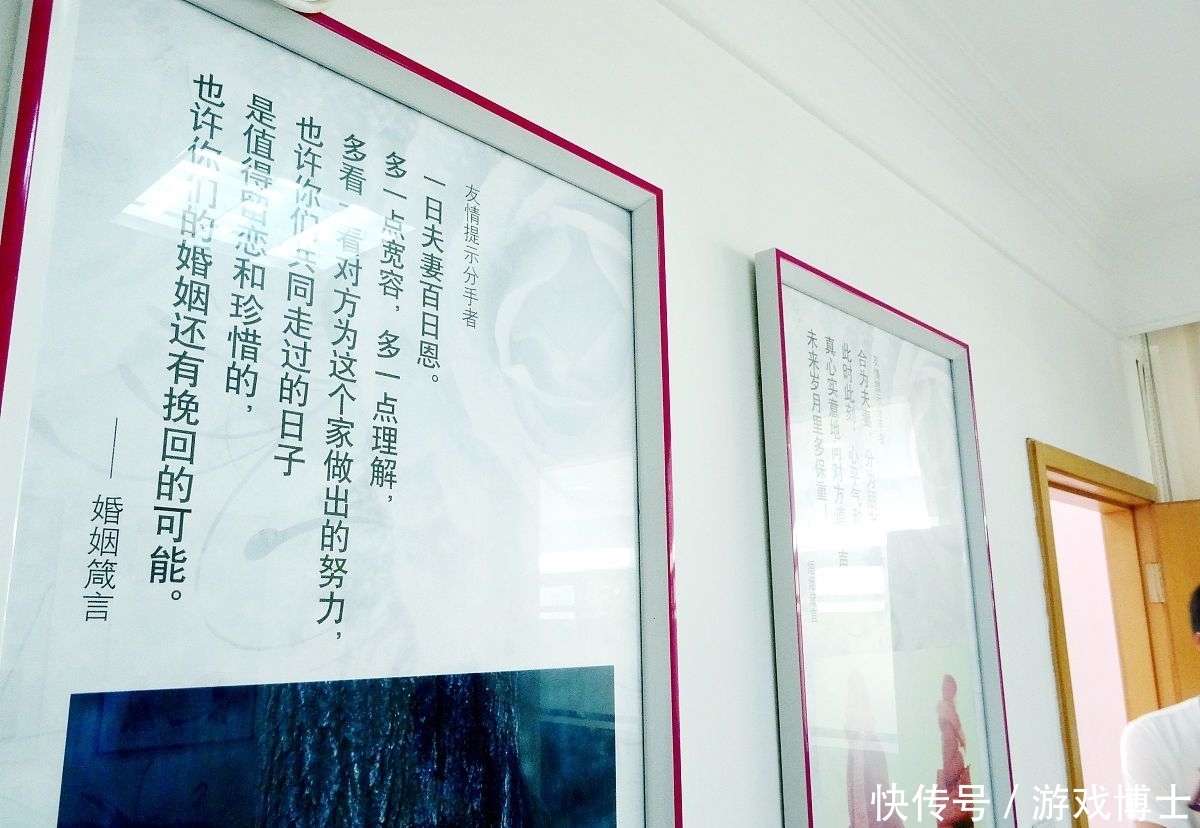 友情提示分手者
一日夫妻百日恩。
多一点宽容，多一点理解，
多看一看对方为这个家做出的努力，
也许你们共同走过的日子
是值得留恋和珍惜的，
也许你们的婚姻还有挽回的可能。
——婚姻箴言
合为夫妻，分为朋
此时此刻，心平气
真心实意地向对方道 声
未来岁月里多保重！
婚姻箴言
快传号/游戏博士